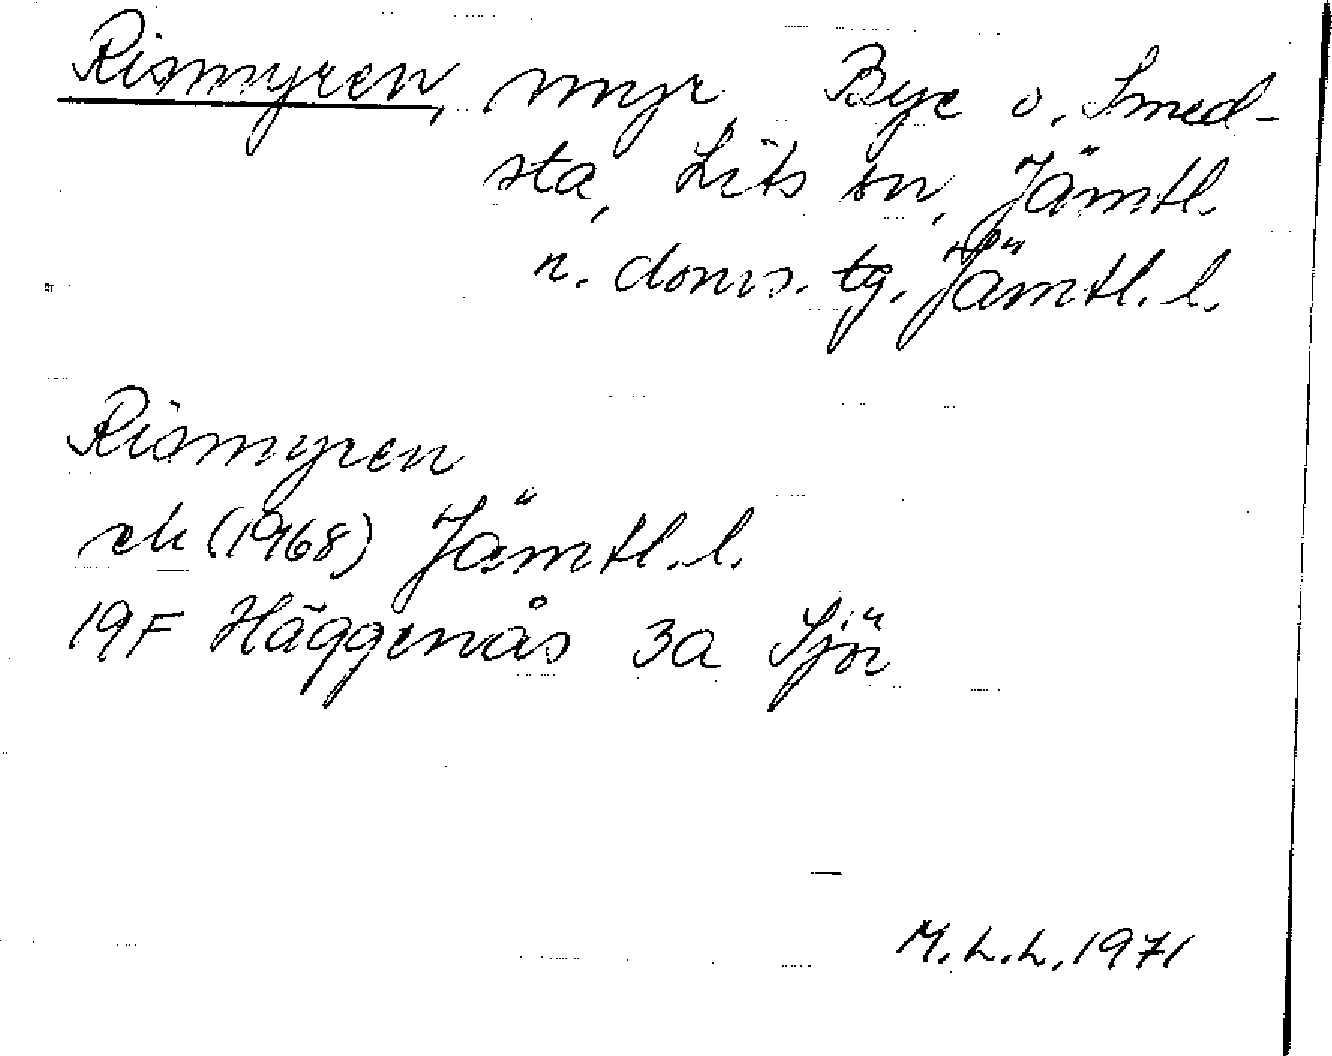 Rismyren, myr, Bye o. Smed-
sta, Lits sn, Jämtl.
n. doms. tg. Jämtl. l.
Rismyren
ek (1968) Jämtl. l.
19F Häggenås 3a Sjör
M.L.L. 1971